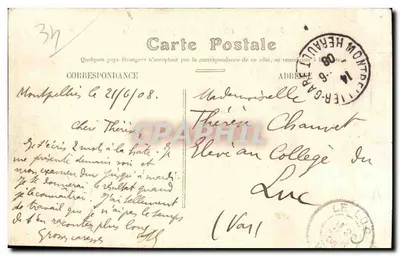 34
Carte Postale
Quelques pays étrangers n'acceptant pas la correspondance de ce côté, se
CORRESPONDANCE
ADRESSE
MONTPELLIER-GARE
HERAULT
14
-6
08
Montpellier le 21/6/08.
Cher
Je t'écris 2 mots à la hâte. Je
me présente demain soir et
mon examen dur jusqu'à mardi.
Je te donnerai le résultat quand
je le connaîtrai. J'ai tellement
de travail que je n'ai pas le temps
de t'en raconter plus long
Grosses caresses
Mademoiselle
Thérèse Chauvet
Elève au Collège du
Luc
(Var)
LE LUC